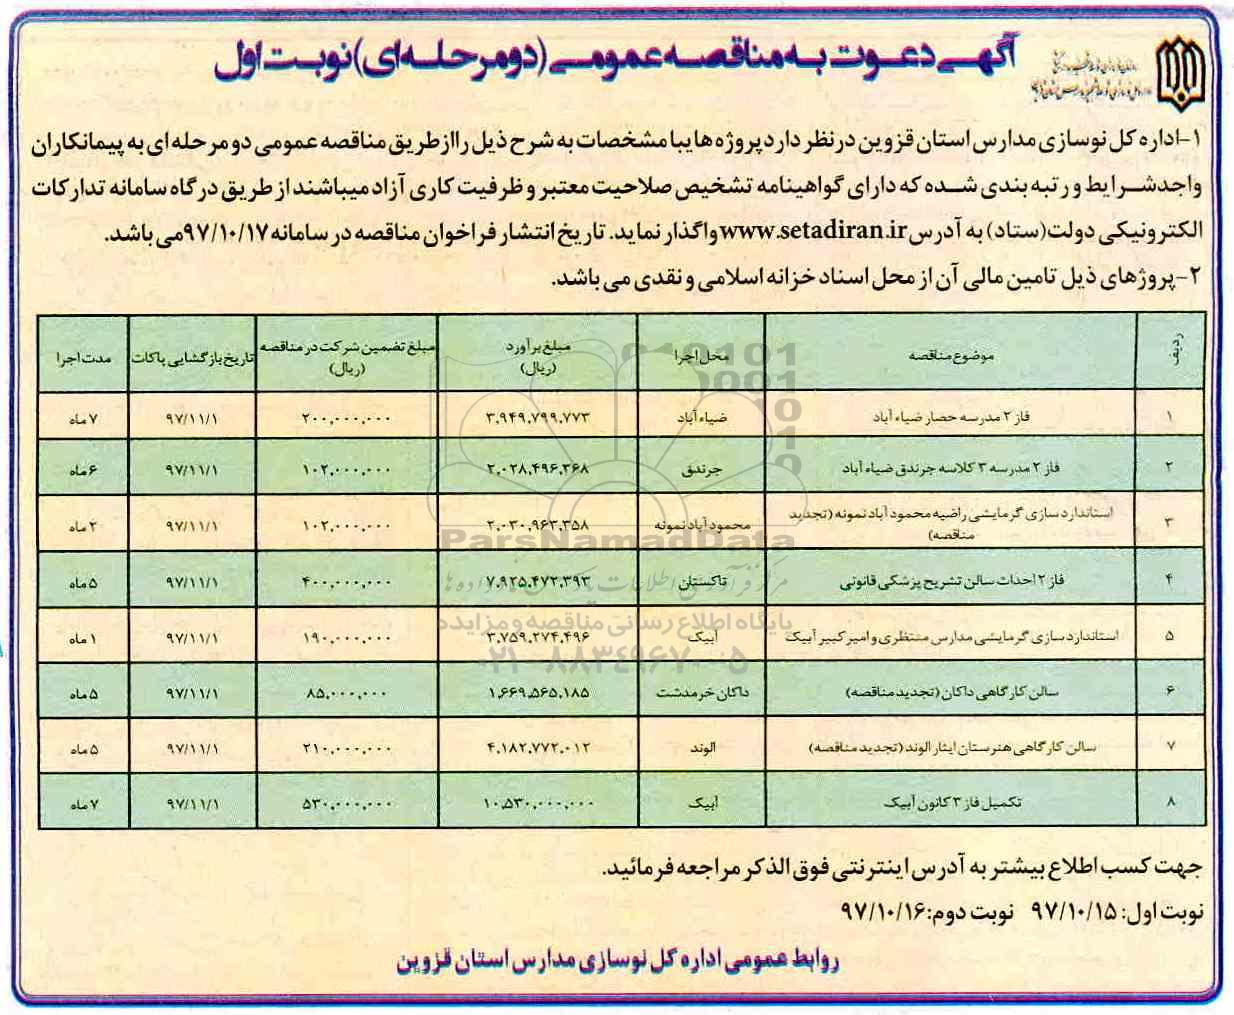 آگهی دعوت به مناقصه عمومی (دو مرحله ای) نوبت اول
۱-اداره کل نوسازی مدارس استان قزوین در نظر دارد پروژه ها یبا مشخصات به شرح ذیل را از طریق مناقصه عمومی دو مرحله ای به پیمانکاران
واجد شرایط و رتبه بندی شده که دارای گواهینامه تشخیص صلاحیت معتبر و ظرفیت کاری آزاد میباشند از طریق درگاه سامانه تدارکات
الکترونیکی دولت (ستاد) به آدرس www.setadiran.ir واگذار نماید. تاریخ انتشار فراخوان مناقصه در سامانه ۹۷/۱۰/۱۷ می باشد.
۲-پروژهای ذیل تامین مالی آن از محل اسناد خزانه اسلامی و نقدی می باشد.
ردیف موضوع مناقصه محل اجرا مبلغ برآورد (ریال) مبلغ تضمین شرکت در مناقصه (ریال) تاریخ بازگشایی پاکات مدت اجرا
۱ فاز ۲ مدرسه حصار ضیاء آباد ضیاء آباد ۳,۹۴۹,۷۹۹,۷۷۳ ۲۰۰,۰۰۰,۰۰۰ ۹۷/۱۱/۱ ۷ ماه
۲ فاز ۲ مدرسه ۳ کلاسه جرندق ضیاء آباد جرندق ۲,۰۲۸,۴۹۶,۳۶۸ ۱۰۲,۰۰۰,۰۰۰ ۹۷/۱۱/۱ ۶ ماه
۳ استاندارد سازی گرمایشی راضیه محمود آباد نمونه (تجدید
مناقصه) محمود آباد نمونه ۲,۰۳۰,۹۶۳,۳۵۸ ۱۰۲,۰۰۰,۰۰۰ ۹۷/۱۱/۱ ۲ ماه
۴ فاز ۲ احداث سالن تشریح پزشکی قانونی تاکستان ۷,۹۲۵,۴۷۲,۳۹۳ ۴۰۰,۰۰۰,۰۰۰ ۹۷/۱۱/۱ ۵ ماه
۵ استاندارد سازی گرمایشی مدارس منتظری و امیر کبیر آبیک آبیک ۳,۷۵۹,۲۷۴,۴۹۶ ۱۹۰,۰۰۰,۰۰۰ ۹۷/۱۱/۱ ۱ ماه
۶ سالن کارگاهی داکان (تجدید مناقصه) داکان خرمدشت ۱,۶۶۹,۵۶۵,۱۸۵ ۸۵,۰۰۰,۰۰۰ ۹۷/۱۱/۱ ۵ ماه
۷ سالن کارگاهی هنرستان ایثار الوند (تجدید مناقصه) الوند ۴,۱۸۲,۷۷۲,۰۱۲ ۲۱۰,۰۰۰,۰۰۰ ۹۷/۱۱/۱ ۵ ماه
۸ تکمیل فاز ۳ کانون آبیک آبیک ۱۰,۵۳۰,۰۰۰,۰۰۰ ۵۳۰,۰۰۰,۰۰۰ ۹۷/۱۱/۱ ۷ ماه
ParsNamadData
پایگاه اطلاع رسانی مناقصه و مزایده
۰۲۱-۸۸۳۴۹۶۷۰-۵
جهت کسب اطلاع بیشتر به آدرس اینترنتی فوق الذکر مراجعه فرمائید.
نوبت اول: ۹۷/۱۰/۱۵ نوبت دوم: ۹۷/۱۰/۱۶
روابط عمومی اداره کل نوسازی مدارس استان قزوین